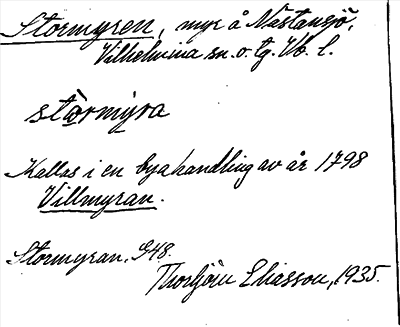 Stormyren, myr å Nästansjö,
Vilhelmina sn. o. tg. Vb. l.
stòrmýra
Kallas i en byahandling av år 1798
Villmyran.
Stormyran, G48.
Thorbjörn Eliasson, 1935.